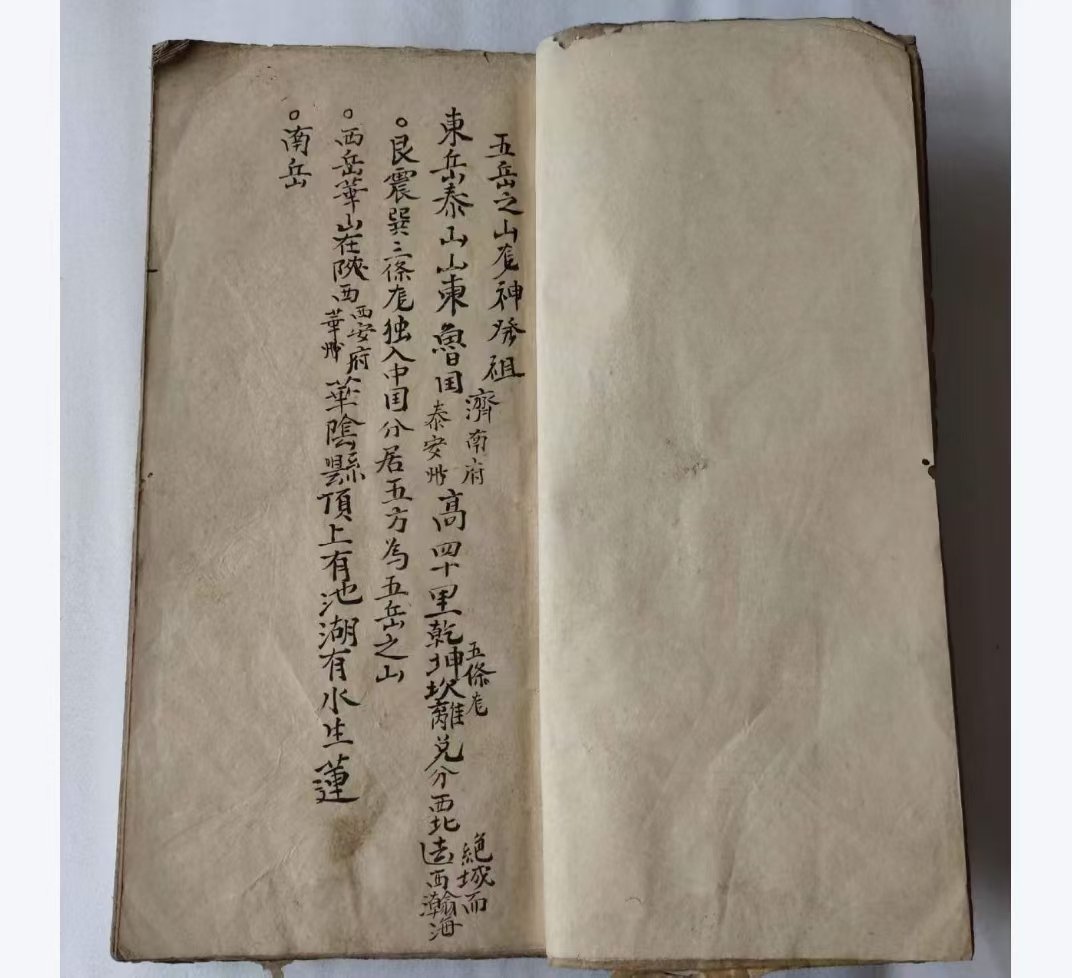 五岳之山龙神發祖
東岳泰山山東魯囯濟南府泰安州高四十里乾坤坎離五條龙兌分西北絕城而去西瀚海
○艮震巽三條龙独入中囯分居五方為五岳之山
○西岳華山在陝西西安府華州華陰縣頂上有池湖有水生蓮
○南岳